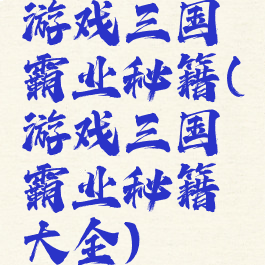 游戏三国
霸业秘籍(
游戏三国
霸业秘籍
大全)